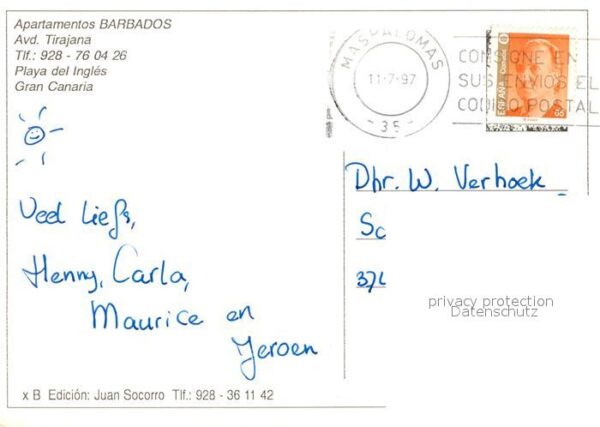 Apartamentos BARBADOS
Avd. Tirajana
Tlf.: 928 - 76 04 26
Playa del Inglés
Gran Canaria
MASPALOMAS
11-7-97
- 35 -
CONSIGNE EN
SUS ENVIOS EL
CODIGO POSTAL
ESPAÑA
Veel liefs,
Henny, Carla,
Maurice en
Jeroen
Dhr. W. Verhoek
Sc
37
privacy protection
Datenschutz
x B Edición: Juan Socorro Tlf.: 928 - 36 11 42